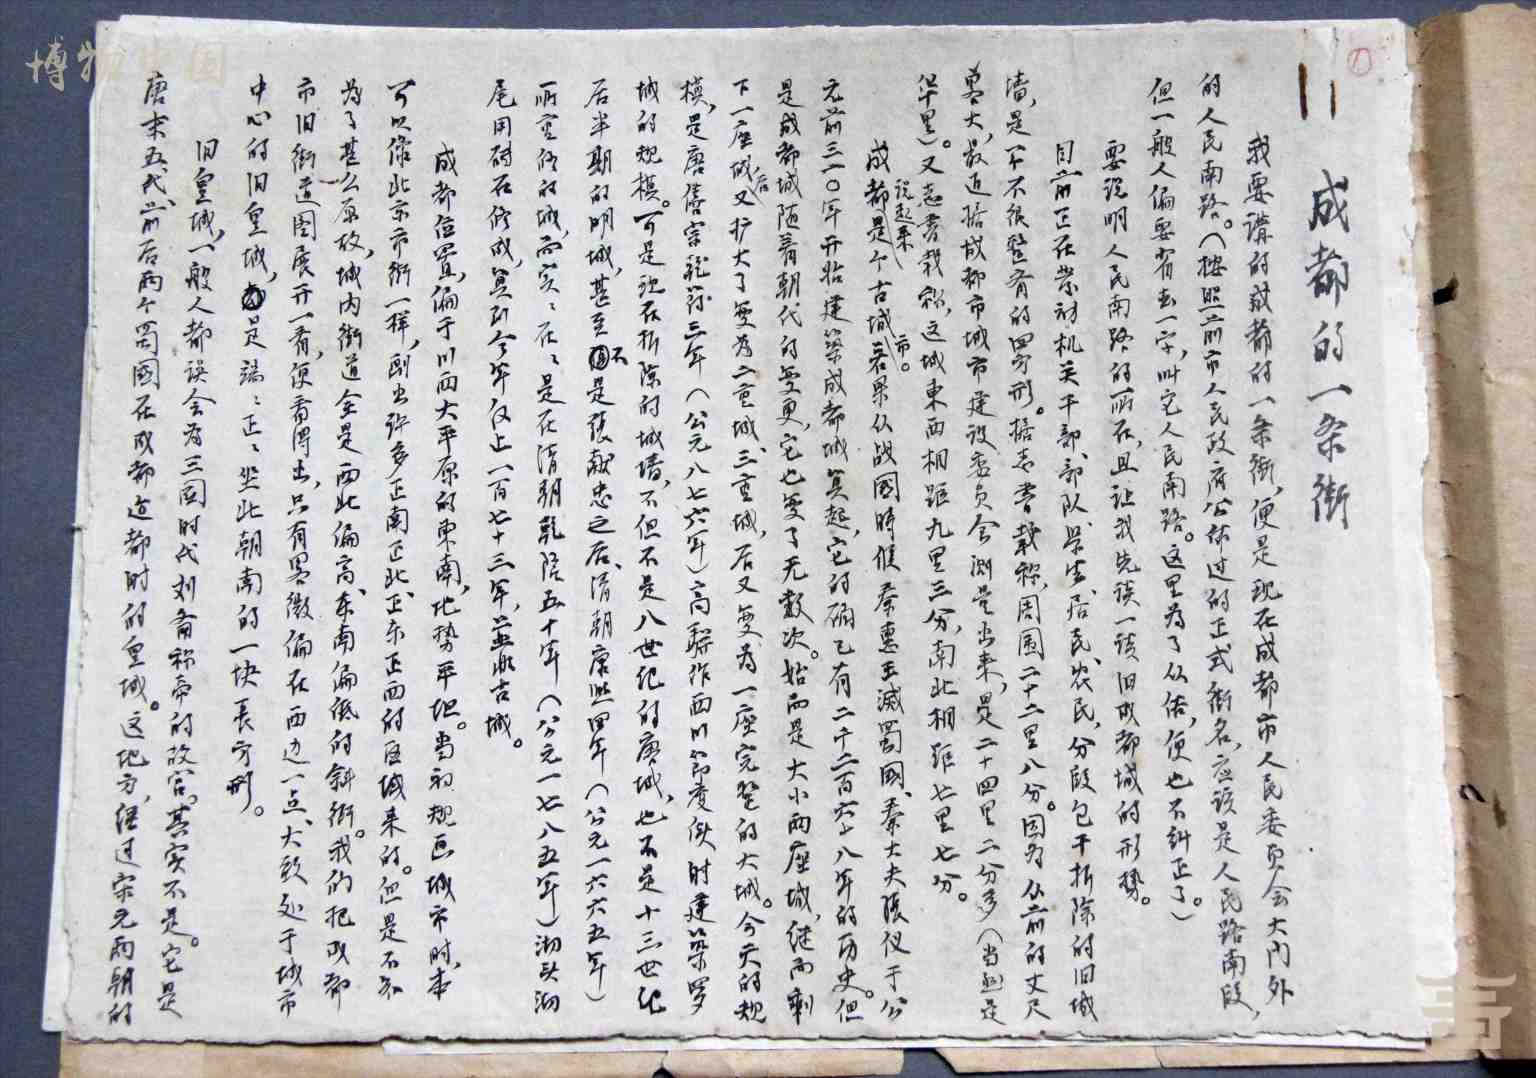 成都的一条街
我要讲的成都的一条街，便是现在成都市人民委员会大门外
的人民南路。（按照前市人民政府公布过的正式街名，应该是人民路南段，
但一般人偏要省去一字，叫它人民南路。这里为了从俗，便也不纠正了。）
要说明人民南路的所在，且让我先谈一谈旧成都城的形势。
目前正在劳动机关干部、部队、学生、居民、农民，分段包干拆除的旧城
墙，是一个不很整齐的四方形。据志书载称，周围二十二里八分。因为从前的丈尺
要大，最近据成都市城市建设委员会测量出来，是二十四里二分多（当然是
华里）。又志书载称，这城东西相距九里三分，南北相距七里七分。
成都说起来是个古城市。若果从战国时候秦惠王灭蜀国、秦大夫张仪于公
元前三一〇年开始建筑成都城算起，它的确已有二千二百六十八年的历史。但
是成都城随着朝代的变更，它也变了无数次。始而是大小两座城，继而剩
下一座城，后又扩大了变为二重城、三重城，后又变为一座完整的大城。今天的规
模，是唐僖宗乾符三年（公元八七六年）高骈作西川节度使时建筑罗
城的规模。可是现在拆除的城墙，不但不是八世纪的唐城，也不是十三世纪
后半期的明城，甚至不是张献忠之后、清朝康熙四年（公元一六六五年）
所重修的城，而实实在在是在清朝乾隆五十年（公元一七八五年）彻头彻
尾用砖石修成，算到今年仅止一百七十三年，并非古城。
成都位置，偏于川西大平原的东南，地势平坦。当初规画城市时，本
可以像北京市街一样，画出许多正南正北、正东正西的区域来的。但是不知
为了甚么原故，城内街道全是西北偏高、东南偏低的斜街。我们把成都
市旧街道图展开一看，便看得出，只有略微偏在西边一点、大致处于城市
中心的旧皇城，是端端正正坐北朝南的一块长方形。
旧皇城，一般人都误会为三国时代刘备称帝的故宫。其实不是。它是
唐末五代、前后两个蜀国在成都建都时的皇城。这地方，经过宋元两朝的
博物中国